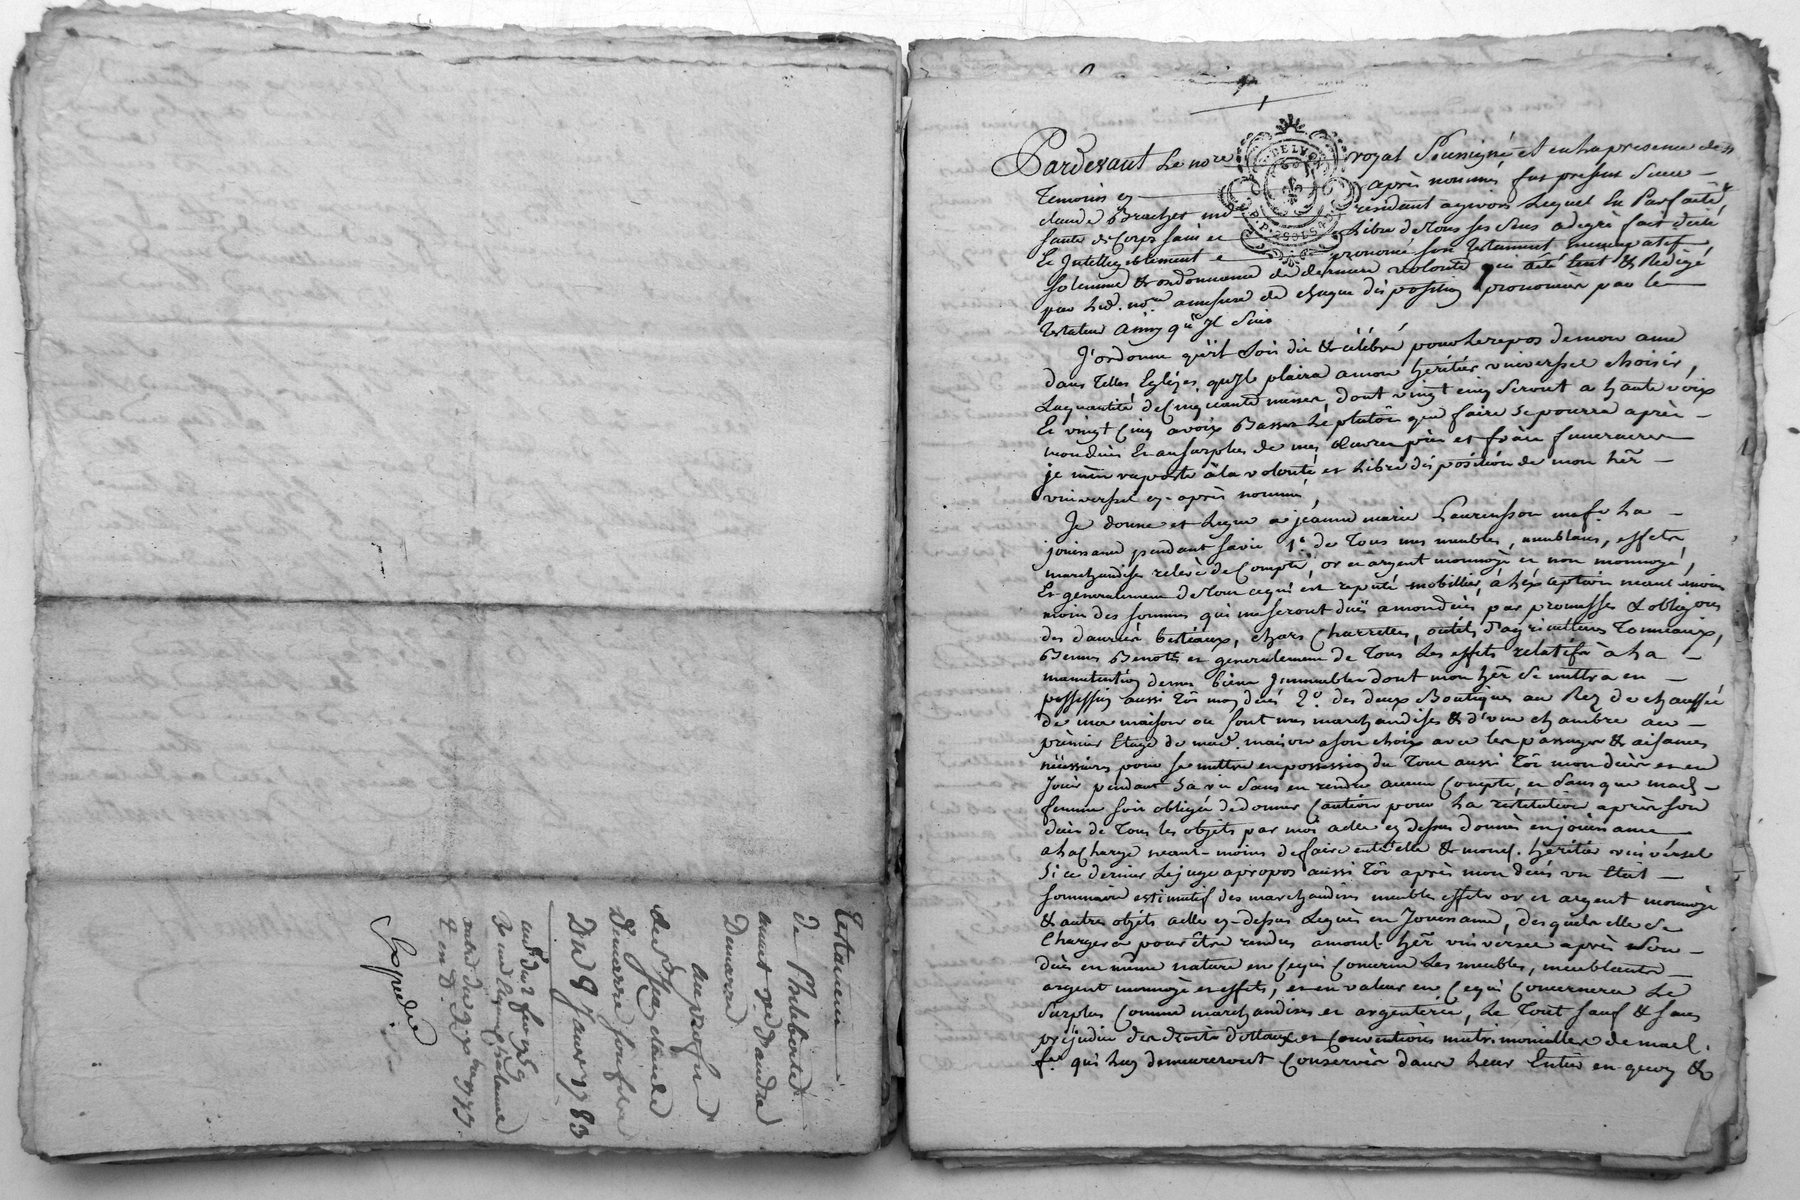 Testament
de Philiberte
Dumarra
au profit
du Sr Jean Claude
Dumarre son fils
Du 9 Janv. 1783
Expedié
Pardevant Le nore royal Soussigné et en La presence des
Temoins cy après nommés fut présent Sieur
claude Brachet md résident agivors Lequel En Parfaite
santé de Corps sain et Libre de Tous ses Sens a degré fait dicté
Et Intelligiblement et prononcé son testament nuncupatif
solemnel & ordonnance de derniere volonté qui a été Ecrit & Redigé
par Led. nore amesure de chaque disposition prononcée par le
testateur Ainsy qu'Il Suit
J'ordonne qu'il soit dit & célébré pour Le repos de mon ame
dans Telles Eglises qu'Il plaira a mon héritier universel choisir,
La quantité de Cinquante messes, dont vingt cinq Seront a haute voix
Et vingt Cinq avoix Basse Le plutôt que faire se pourra après
mon decès Et au surplus de mes œuvres pies et frais funeraires
je m'en raporte à la volonté et Libre disposition de mon her
universel cy-après nommé,
Je donne et Legue a jeanne marie Laurenson ma fe. La
jouissance pendant sa vie 1° de Tous mes meubles, meublans, effets
marchandises relevé de Compte, or et argent monnoyé et non monnoyé,
Et generalement de Tout ce qui est reputé mobillier, à L'exception neant moins
moin des sommes qui me seront dües a mon decès par promesses & obligons
des danrées, bestiaux, chars Charrettes, outils d'agriculture Tonneaux,
Bennes Benots et generalement de Tous Les effets relatifs à La
manutention de mes biens Immeubles dont mon her Se mettra en
possession aussi tôt mon decès 2° des deux Boutiques au Rez de chaussée
de ma maison ou sont mes marchandises & d'une chambre au
prémier Etage de mad. maison a son choix avec les passages & aisances
nécéssaires pour se mettre en possession du Tout aussi tôt mon decès et en
Jouir pendant sa vie Sans en rendre aucun Compte, et Sans que mad.
femme soit obligée de donner Caution pour La restitution après son
decès de Tous les objets par moi a elle cy dessus donnés en jouissance
a La Charge neant-moins de faire entr'elle & mond. héritier universel
Si ce dernier Le juge apropos aussi tôt après mon decès un Etat
sommaire estimatif des marchandises meubles effets or et argent monnoyé
& autres objets a elle cy-dessus Legués en Jouissance, desquels elle Se
Chargera pour être rendus a mond. her universel après son
decès en même nature en Ce qui Concerne Les meubles, meublants
argent monnoyé et effets, et en valeur en Ce qui Concernera Le
Surplus Comme marchandises et argenterie, Le Tout sauf & sans
préjudice des droits dottaux et Conventions matrimonialles de mad.
fe. qui Luy demeureront Conservés dans Leur Entier en quoy &